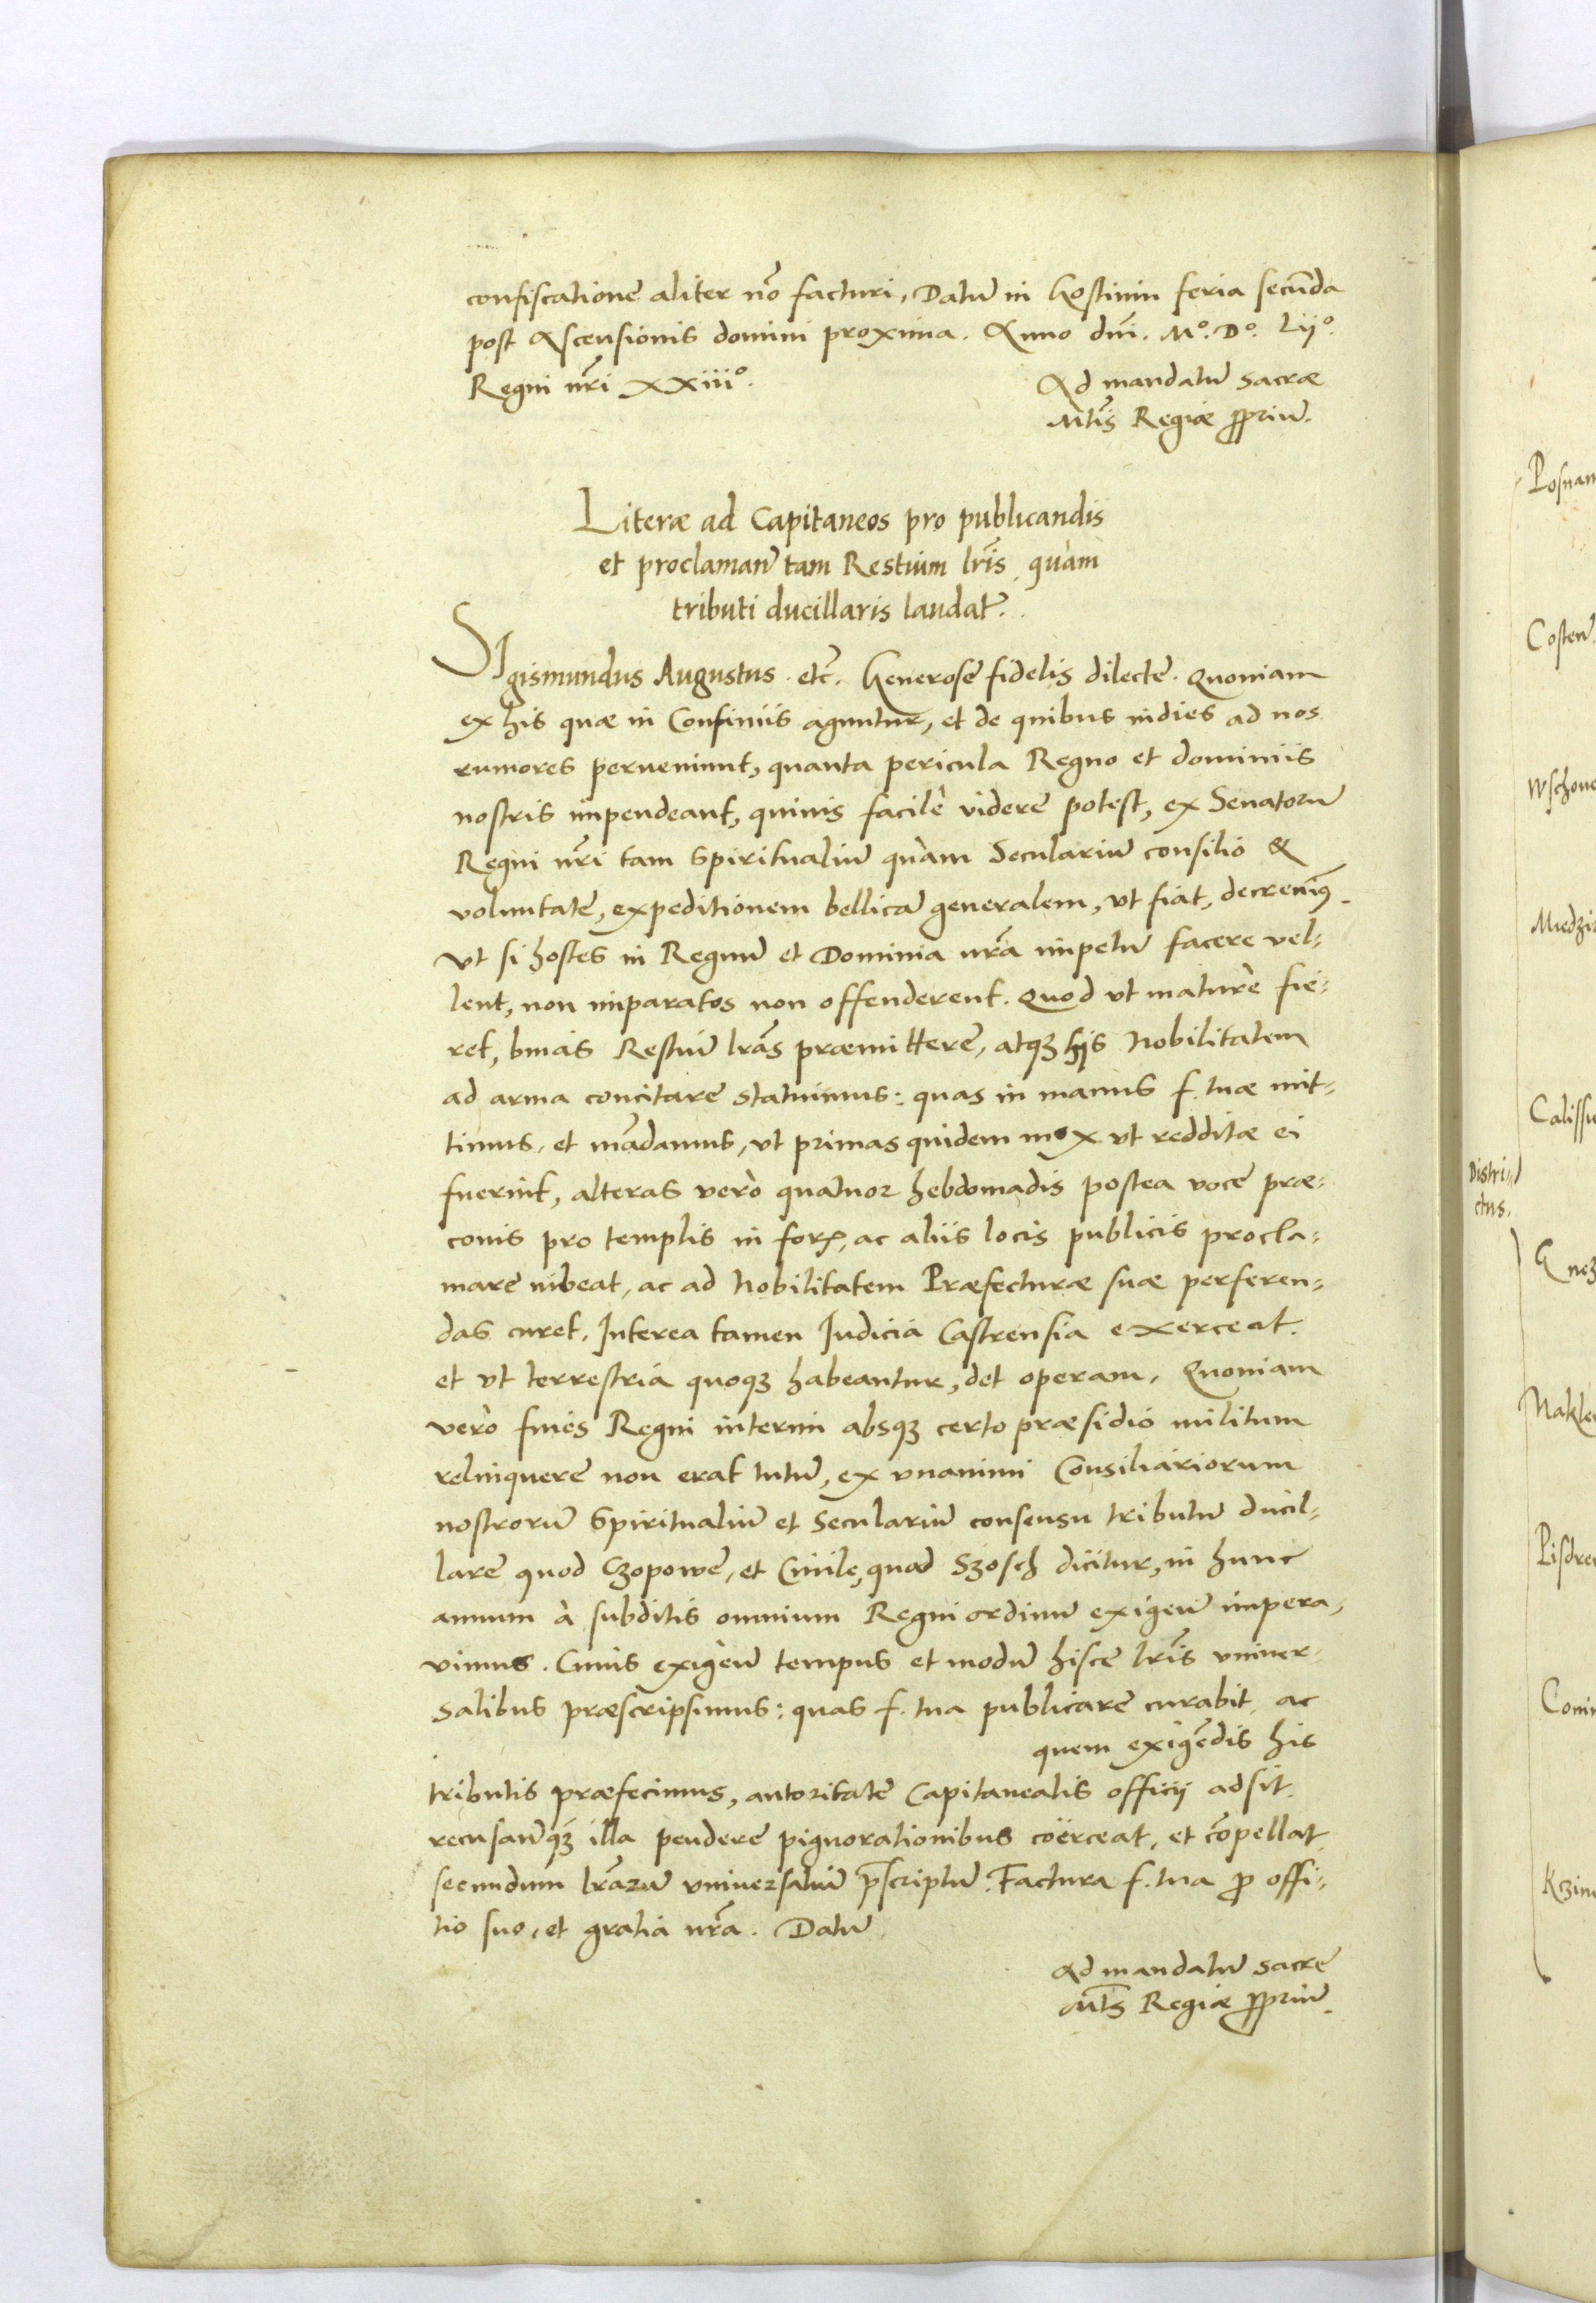 confiscatione aliter nõ facturi. Datũ in Gostinin feria secũda
post Ascensionis domini proxima. Anno dñi. Mº. Dº. Lijº.
Regni nr̃i XXiiiº.
Ad mandatũ sacræ
Mt̃is Regiæ ꝓpriũ.
Literæ ad Capitaneos pro publicandis
et proclaman̄ tam Restium lr̃is quàm
tributi ducillaris laudat̃.
SIgismundus Augustus. etc̃. Generose fidelis dilecte. Quoniam
ex his quæ in Confiniis aguntur, et de quibus indies ad nos
rumores perveniunt, quanta pericula Regno et dominiis
nostris impendeant, quivis facilè videre potest, ex Senatorũ
Regni nr̃i tam Spiritualiũ quàm Seculariũ consilio &
voluntate, expeditionem bellicã generalem, vt fiat, decrevim9.
Vt si hostes in Regnũ et Dominia nr̃a impetũ facere vel-
lent, non imparatos non offenderent. Quod vt maturè fie-
ret, binas Restiũ lr̃as præmittere, atqꝫ hijs Nobilitatem
ad arma concitare statuimus: quas in manus f. tuæ mit-
timus, et mãdamus, vt primas quidem mox vt redditæ ei
fuerint, alteras verò quatuor hebdomadis postea voce præ-
conis pro templis in forꝭ, ac aliis locis publicis procla-
mare iubeat, ac ad Nobilitatem Præfecturæ suæ perferen-
das curet. Interea tamen Iudicia Castrensia exerceat.
et vt terrestria quoqꝫ habeantur, det operam. Quoniam
verò fines Regni interim absqꝫ certo præsidio militum
relinquere non erat tutũ, ex vnanimi Consiliariorum
nostrorũ Spiritualiũ et Seculariũ consensu tributũ ducil-
lare quod Czopowe, et Civile, quod Szosch dicitur, in hunc
annum à subditis omnium Regni ordinũ exigen̄ impera-
vimus. Cuius exigen̄ tempus et modũ hisce lr̃is vniver-
salibus præscripsimus: quas f. tua publicare curabit, ac
quem exigẽdis his
tributis præfecimus, autoritate Capitanealis officij adsit.
recusan̄qꝫ illa pendere pignorationibus coërceat, et cõpellat
secundum lr̃arũ vniversaliũ p̃scriptũ. Factura f. tua ꝓ offi-
tio suo, et gratia nr̃a. Datũ
Ad mandatũ sacre
Mt̃is Regiæ ꝓpriũ.
Distri-
ctus.